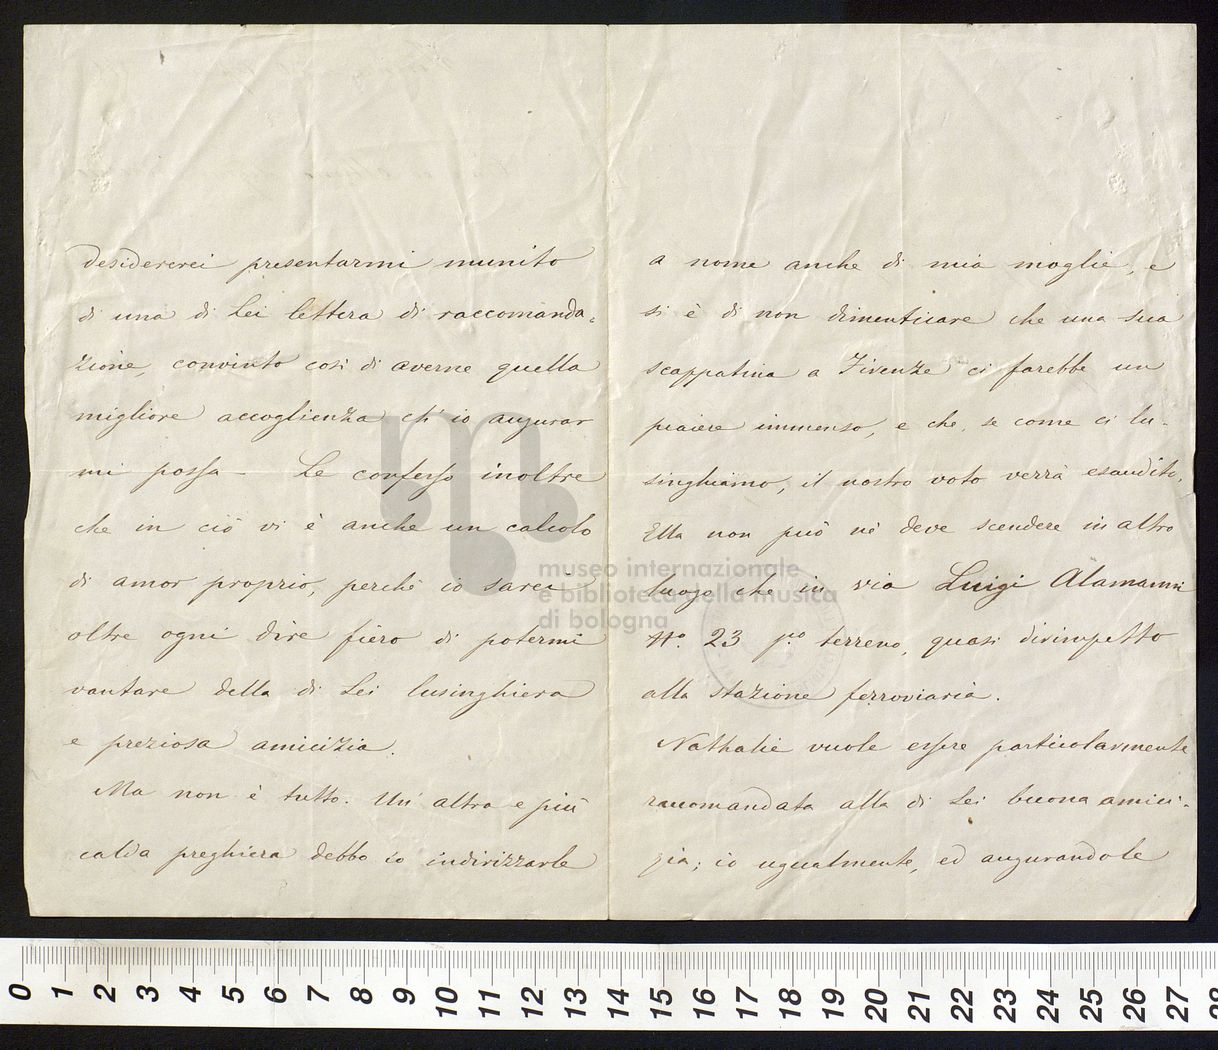 desidererei presentarmi munito
di una di Lei lettera di raccomanda=
zione, convinto così di averne quella
migliore accoglienza ch'io augurar
mi possa – Le confesso inoltre
che in ciò vi è anche un calcolo
di amor proprio, perchè io sarei
oltre ogni dire fiero di potermi
vantare della di Lei lusinghiera
e preziosa amicizia.
Ma non è tutto. Un'altra e più
calda preghiera debbo io indirizzarle
a nome anche di mia moglie, e
si è di non dimenticare che una sua
scappatina a Firenze ci farebbe un
piacere immenso, e che, se come ci lu-
singhiamo, il nostro voto verrà esaudito,
Ella non può nè deve scendere in altro
luogo che in via Luigi Alamanni
N.º 23 p.º terreno, quasi dirimpetto
alla stazione ferroviaria.
Nathalie vuole essere particolarmente
raccomandata alla di Lei buona amici-
zia; io ugualmente, ed augurandole
museo internazionale
e biblioteca della musica
di bologna
0 1 2 3 4 5 6 7 8 9 10 11 12 13 14 15 16 17 18 19 20 21 22 23 24 25 26 27 28